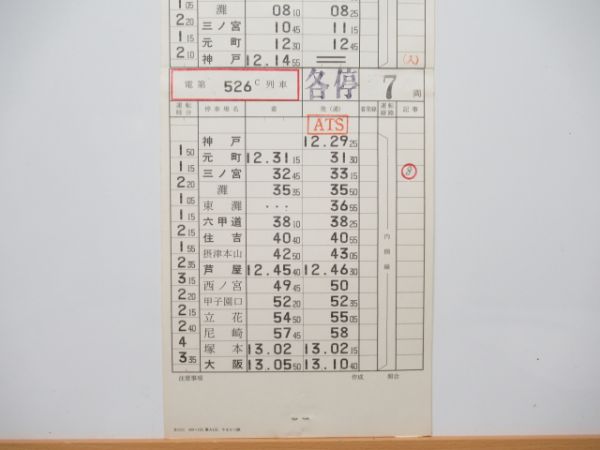 1 05 灘 08 10 08 25
2 20 三ノ宮 10 45 11 15
1 15 元町 12 30 12 45
2 10 神戸 12.14 55
(入)
電第 526 C 列車 各停 7 両
運転時分 停車場名 着 発(通) 着発線 運転線路 記事
ATS
神戸 12.29 25
1 50 元町 12.31 15 31 30
1 15 三ノ宮 32 45 33 15
2 20 灘 35 35 35 50
1 05 東灘 ・・・ 36 55
1 15 六甲道 38 10 38 25
2 15 住吉 40 40 40 55
1 55 摂津本山 42 50 43 05
2 35 芦屋 12.45 40 12.46 30
3 15 西ノ宮 49 45 50
2 20 甲子園口 52 20 52 35
2 15 立花 54 50 55 05
2 40 尼崎 57 45 58
4 塚本 13.02 13.02 15
3 35 大阪 13.05 50 13.10 40
内側線
注意事項 作成 照合